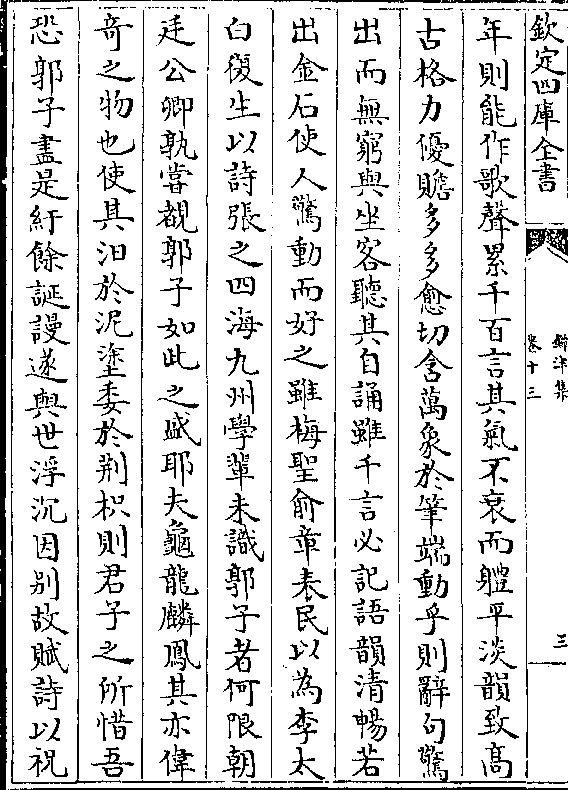 欽定四庫全書
鐔津集
卷十三
三
年則能作歌聲累千百言其氣不衰而體平淡韻致髙
古格力優贍多多愈切含萬象於筆端動乎則辭句驚
出而無窮與坐客聽其自誦雖千言必記語韻清暢若
出金石使人驚動而好之雖梅聖俞章表民以為李太
白復生以詩張之四海九州學輩未識郭子者何限朝
廷公卿孰嘗覩郭子如此之盛耶夫龜龍麟鳳其亦偉
竒之物也使其汨於泥塗委於荆枳則君子之所惜吾
恐郭子盡是紆餘誕謾遂與世浮沉因别故賦詩以祝